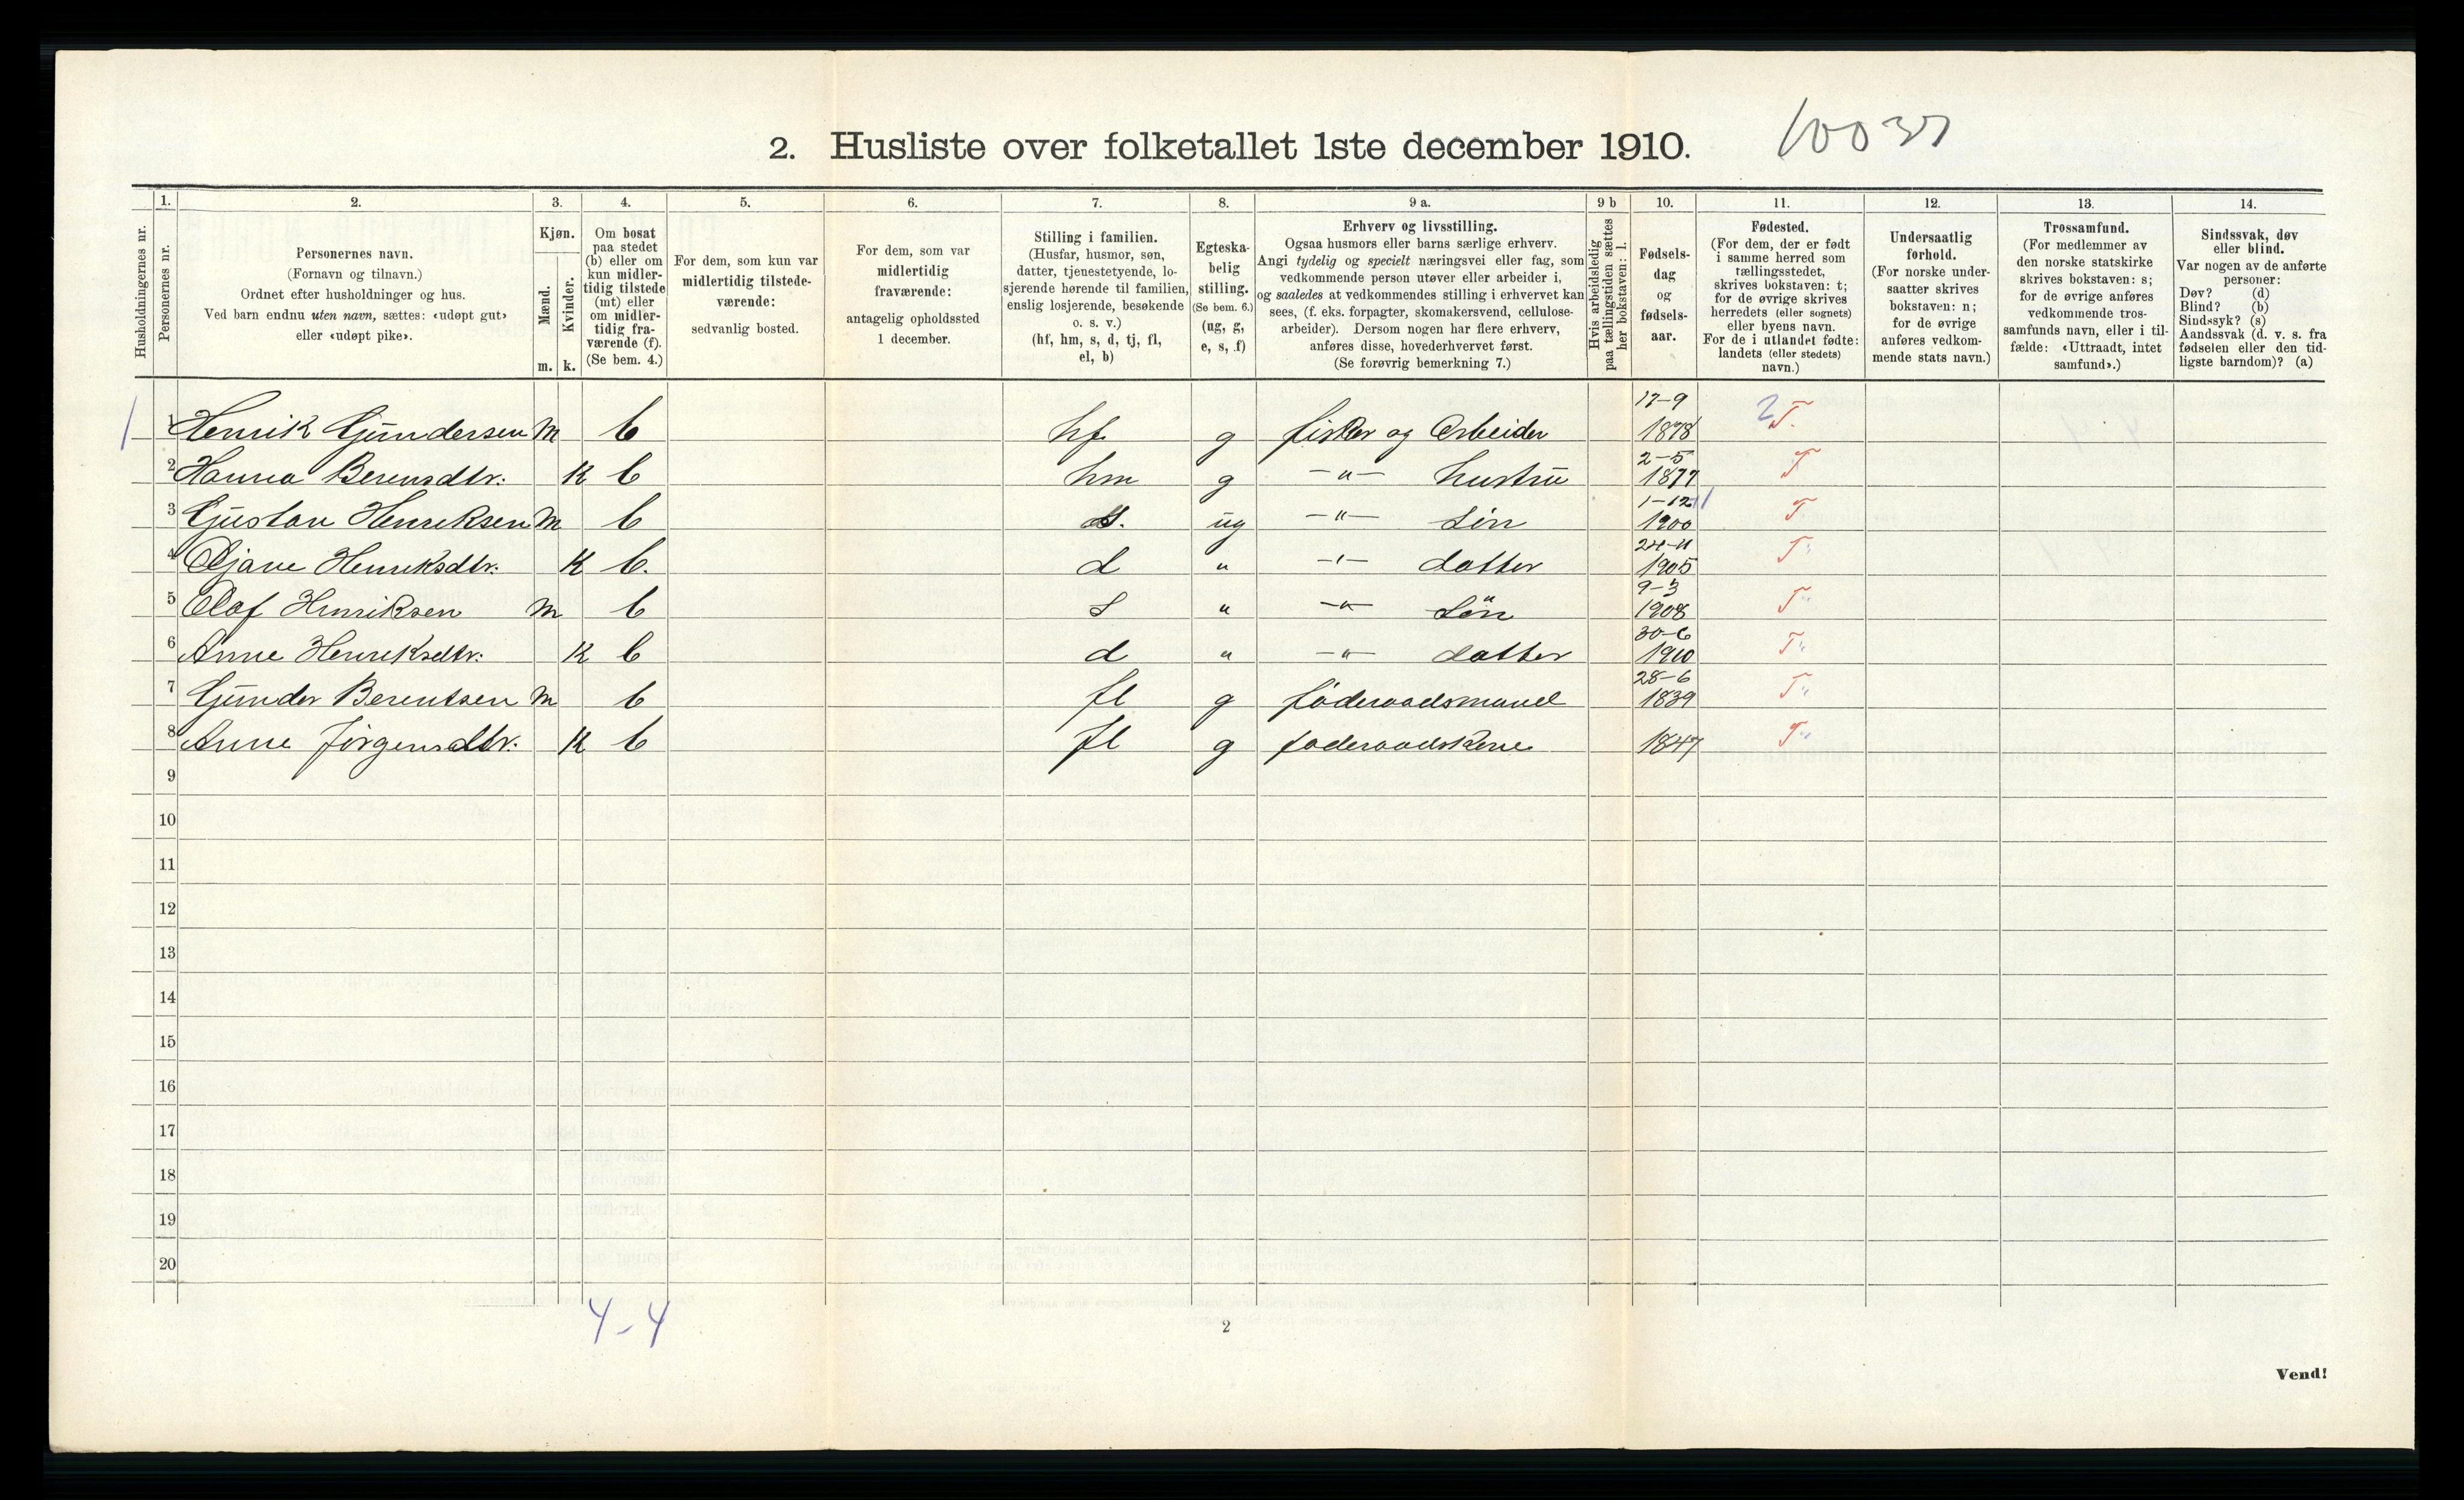 2. Husliste over folketallet 1ste december 1910. 10037
Husholdningernes nr.
1. Personernes nr.
2. Personernes navn.
(Fornavn og tilnavn.)
Ordnet efter husholdninger og hus.
Ved barn endnu uten navn, sættes: «udøpt gut»
eller «udøpt pike».
3. Kjøn.
Mænd. m.
Kvinder. k.
4. Om bosat
paa stedet
(b) eller om
kun midler-
tidig tilstede
(mt) eller
om midler-
tidig fra-
værende (f).
(Se bem. 4.)
5. For dem, som kun var
midlertidig tilstede-
værende:
sedvanlig bosted.
6. For dem, som var
midlertidig
fraværende:
antagelig opholdssted
1 december.
7. Stilling i familien.
(Husfar, husmor, søn,
datter, tjenestetyende, lo-
sjerende hørende til familien,
enslig losjerende, besøkende
o. s. v.)
(hf, hm, s, d, tj, fl,
el, b)
8. Egteska-
belig
stilling.
(Se bem. 6.)
(ug, g,
e, s, f)
9 a. Erhverv og livsstilling.
Ogsaa husmors eller barns særlige erhverv.
Angi tydelig og specielt næringsvei eller fag, som
vedkommende person utøver eller arbeider i,
og saaledes at vedkommendes stilling i erhvervet kan
sees, (f. eks. forpagter, skomakersvend, cellulose-
arbeider). Dersom nogen har flere erhverv,
anføres disse, hovederhvervet først.
(Se forøvrig bemerkning 7.)
9 b Hvis arbeidsledig
paa tællingstiden sættes
her bokstaven: l.
10. Fødsels-
dag
og
fødsels-
aar.
11. Fødested.
(For dem, der er født
i samme herred som
tællingsstedet,
skrives bokstaven: t;
for de øvrige skrives
herredets (eller sognets)
eller byens navn.
For de i utlandet fødte:
landets (eller stedets)
navn.)
12. Undersaatlig
forhold.
(For norske under-
saatter skrives
bokstaven: n;
for de øvrige
anføres vedkom-
mende stats navn.)
13. Trossamfund.
(For medlemmer av
den norske statskirke
skrives bokstaven: s;
for de øvrige anføres
vedkommende tros-
samfunds navn, eller i til-
fælde: «Uttraadt, intet
samfund».)
14. Sindssvak, døv
eller blind.
Var nogen av de anførte
personer:
Døv? (d)
Blind? (b)
Sindssyk? (s)
Aandssvak (d. v. s. fra
fødselen eller den tid-
ligste barndom)? (a)
1 1 Henrik Gundersen m b hf g fisker og Arbeider 17-9 1878 2 T.
2 Hanna Berensdtr. k b hm g -"- hustru 2-5 1877 T
3 Gustav Henriksen m b s. ug -"- Søn 1-12 1900 T
4 Ojane Henriksdtr. k b. d " -"- datter 24-11 1905 T
5 Olaf Henriksen m b s " -"- Søn 9-3 1908 T
6 Anne Henriksdtr. k b d " -"- datter 30-6 1910 T
7 Gunder Berentsen m b fl g föderaadsmand 28-6 1839 T
8 Anne Jörgensdtr. k b fl g foderaadskone 1847 T
9
10
11
12
13
14
15
16
17
18
19
20
4-4
2
Vend!